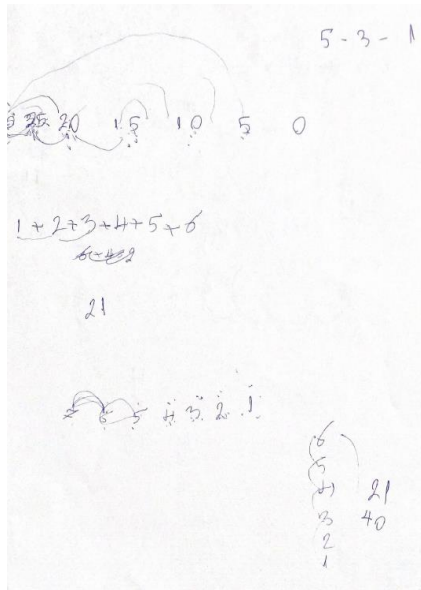 5 - 3 - 1
25 20 15 10 5 0
1+2+3+4+5+6
21
7 6 5 4 3 2 1
6
5
4 21
3 40
2
1